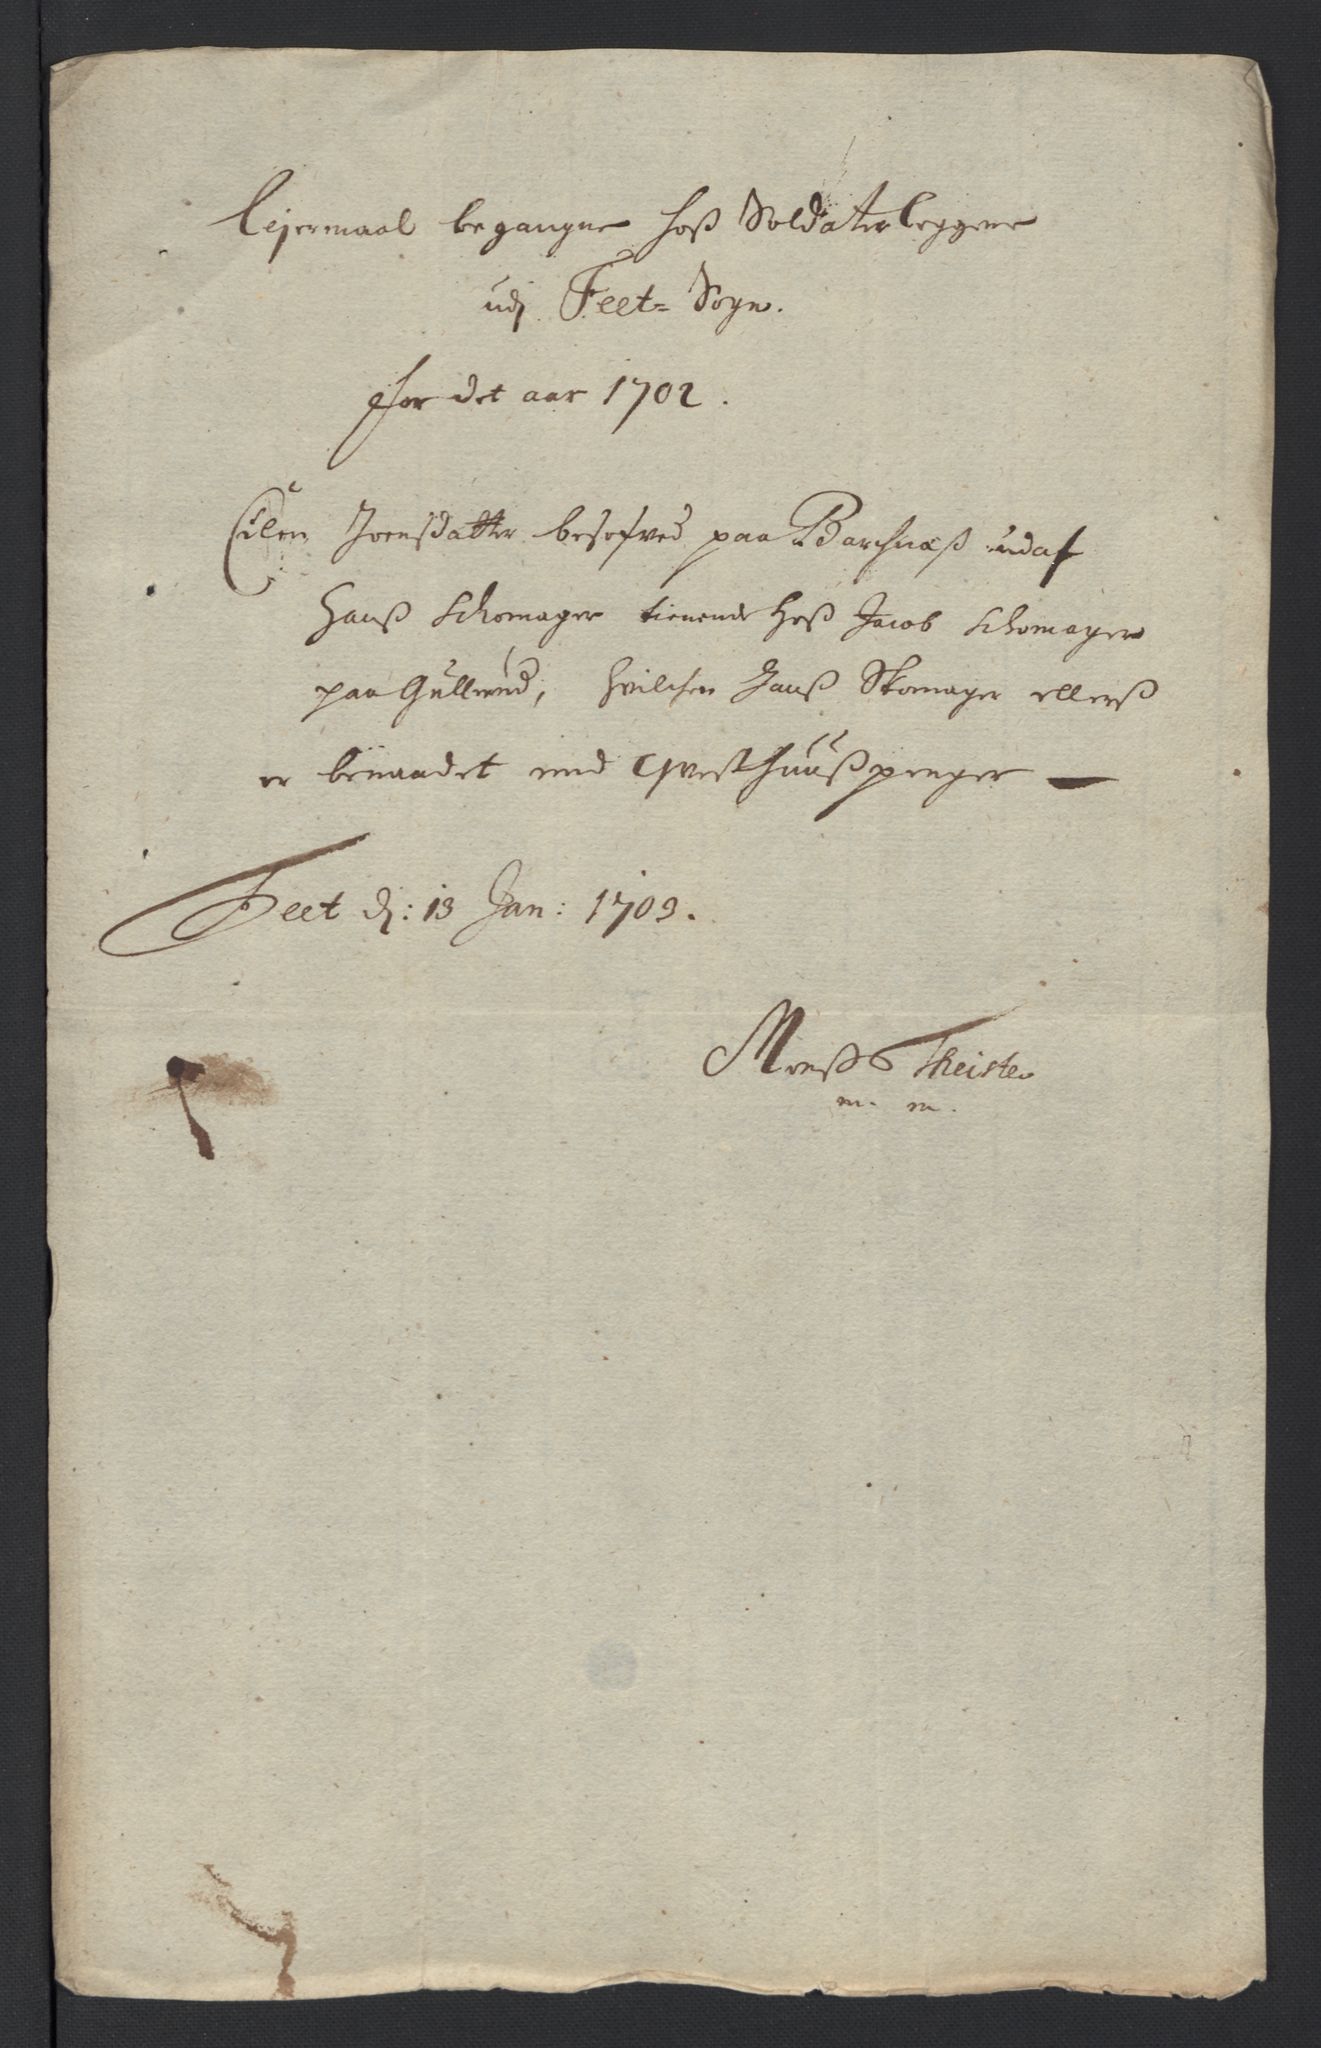 Lejermaal begangne hoß Soldater leggene
udj Feet= Sogn.
for det aar 1702.
Eilen Joensdatter besofved paa Barchnæß udaf
Hanß Schomager tienende hoß Jacob Schomager
paa Gullerud, hvilchen Hanß Skomager ellerß
er benaadet med Qvesthuußpenger —
Feet dj: 13 Jan: 1703.
Monß Theiste
m. m.